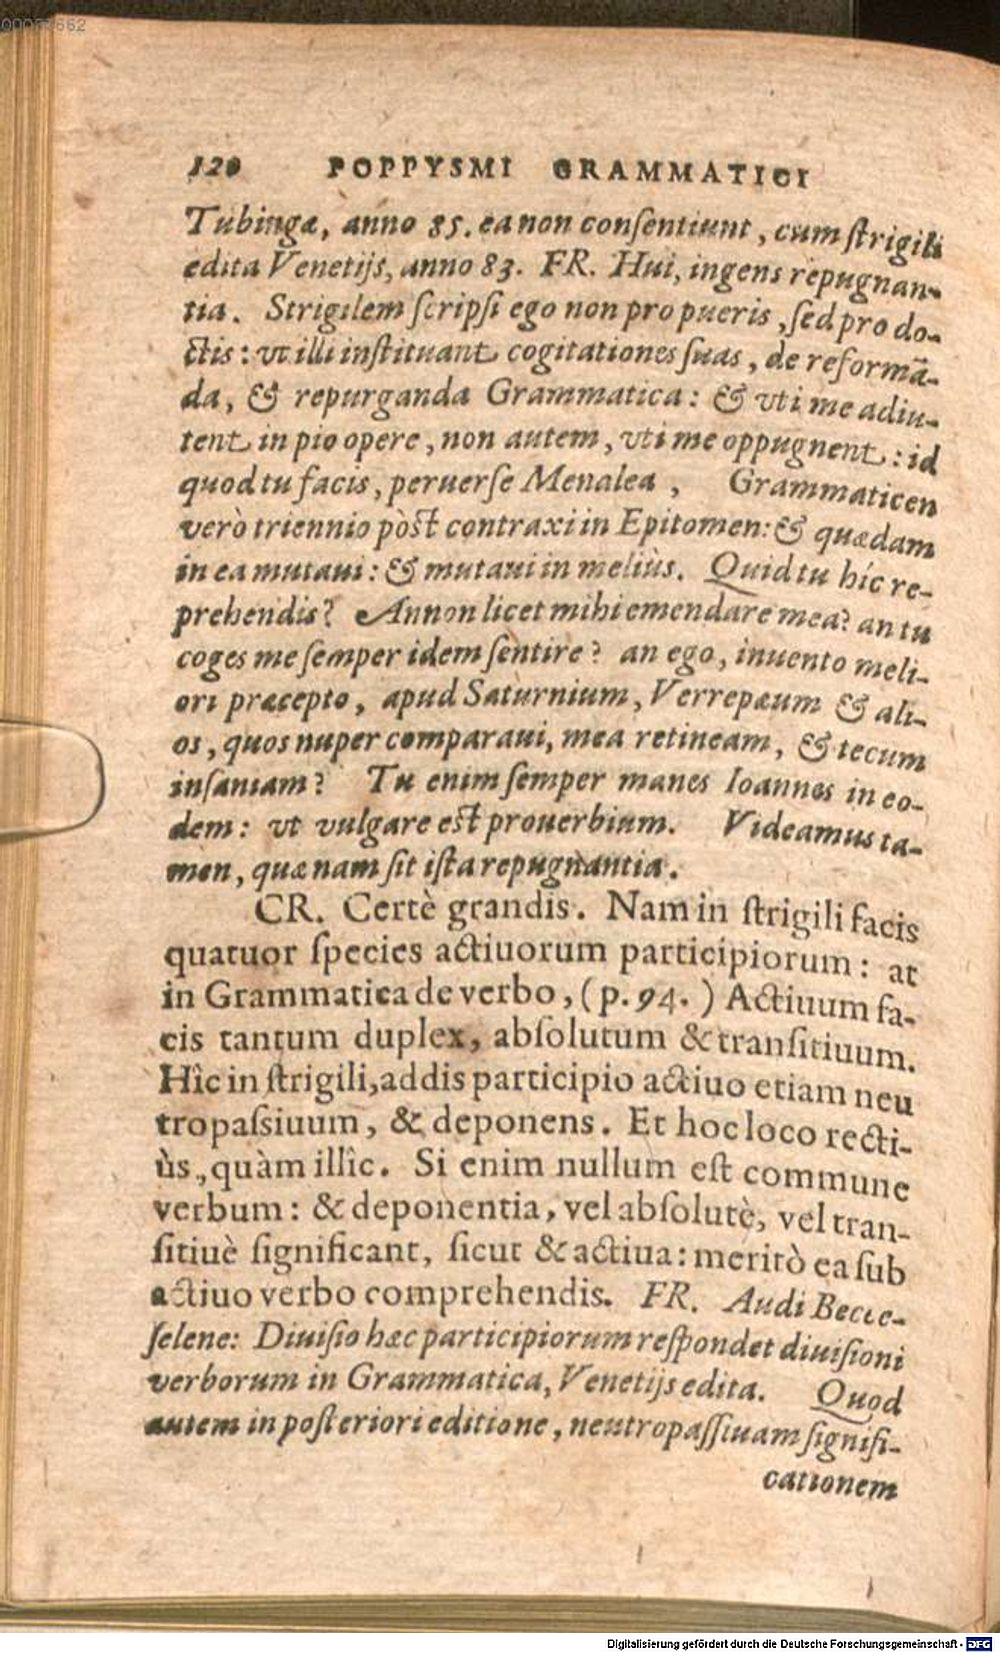 00087662
120 POPPYSMI GRAMMATICI
Tubingæ, anno 85. ea non conſentiunt, cum ſtrigili
edita Venetijs, anno 83. FR. Hui, ingens repugnan-
tia. Strigilem ſcripſi ego non pro pueris, ſed pro do-
ctis: vt illi inſtituant cogitationes ſuas, de reformã-
da, & repurganda Grammatica: & vti me adiu-
tent in pio opere, non autem, vti me oppugnent: id
quod tu facis, peruerſe Menalca, Grammaticen
verò triennio pòst contraxi in Epitomen: & quædam
in ea mutaui: & mutaui in meliùs. Quid tu híc re-
prehendis? Annon licet mihi emendare mea? an tu
coges me ſemper idem ſentire? an ego, inuento meli-
ori præcepto, apud Saturnium, Verrepæum & ali-
os, quos nuper comparaui, mea retineam, & tecum
inſaniam? Tu enim ſemper manes Ioannes in eo-
dem: vt vulgare est prouerbium. Videamus ta-
men, quænam ſit iſta repugnantia.
CR. Certè grandis. Nam in ſtrigili facis
quatuor ſpecies actiuorum participiorum: at
in Grammatica de verbo, (p. 94.) Actiuum fa-
cis tantum duplex, abſolutum & tranſitiuum.
Hîc in ſtrigili, addis participio actiuo etiam neu
tropaſsiuum, & deponens. Et hoc loco recti-
ùs, quàm illîc. Si enim nullum eſt commune
verbum: & deponentia, vel abſolutè, vel tran-
ſitiuè ſignificant, ſicut & actiua: meritò ea ſub
actiuo verbo comprehendis. FR. Audi Becce-
ſelene: Diuiſio hæc participiorum reſpondet diuiſioni
verborum in Grammatica, Venetijs edita. Quod
autem in poſteriori editione, neutropaſſiuam ſignifi-
cationem
Digitalisierung gefördert durch die Deutsche Forschungsgemeinschaft - DFG